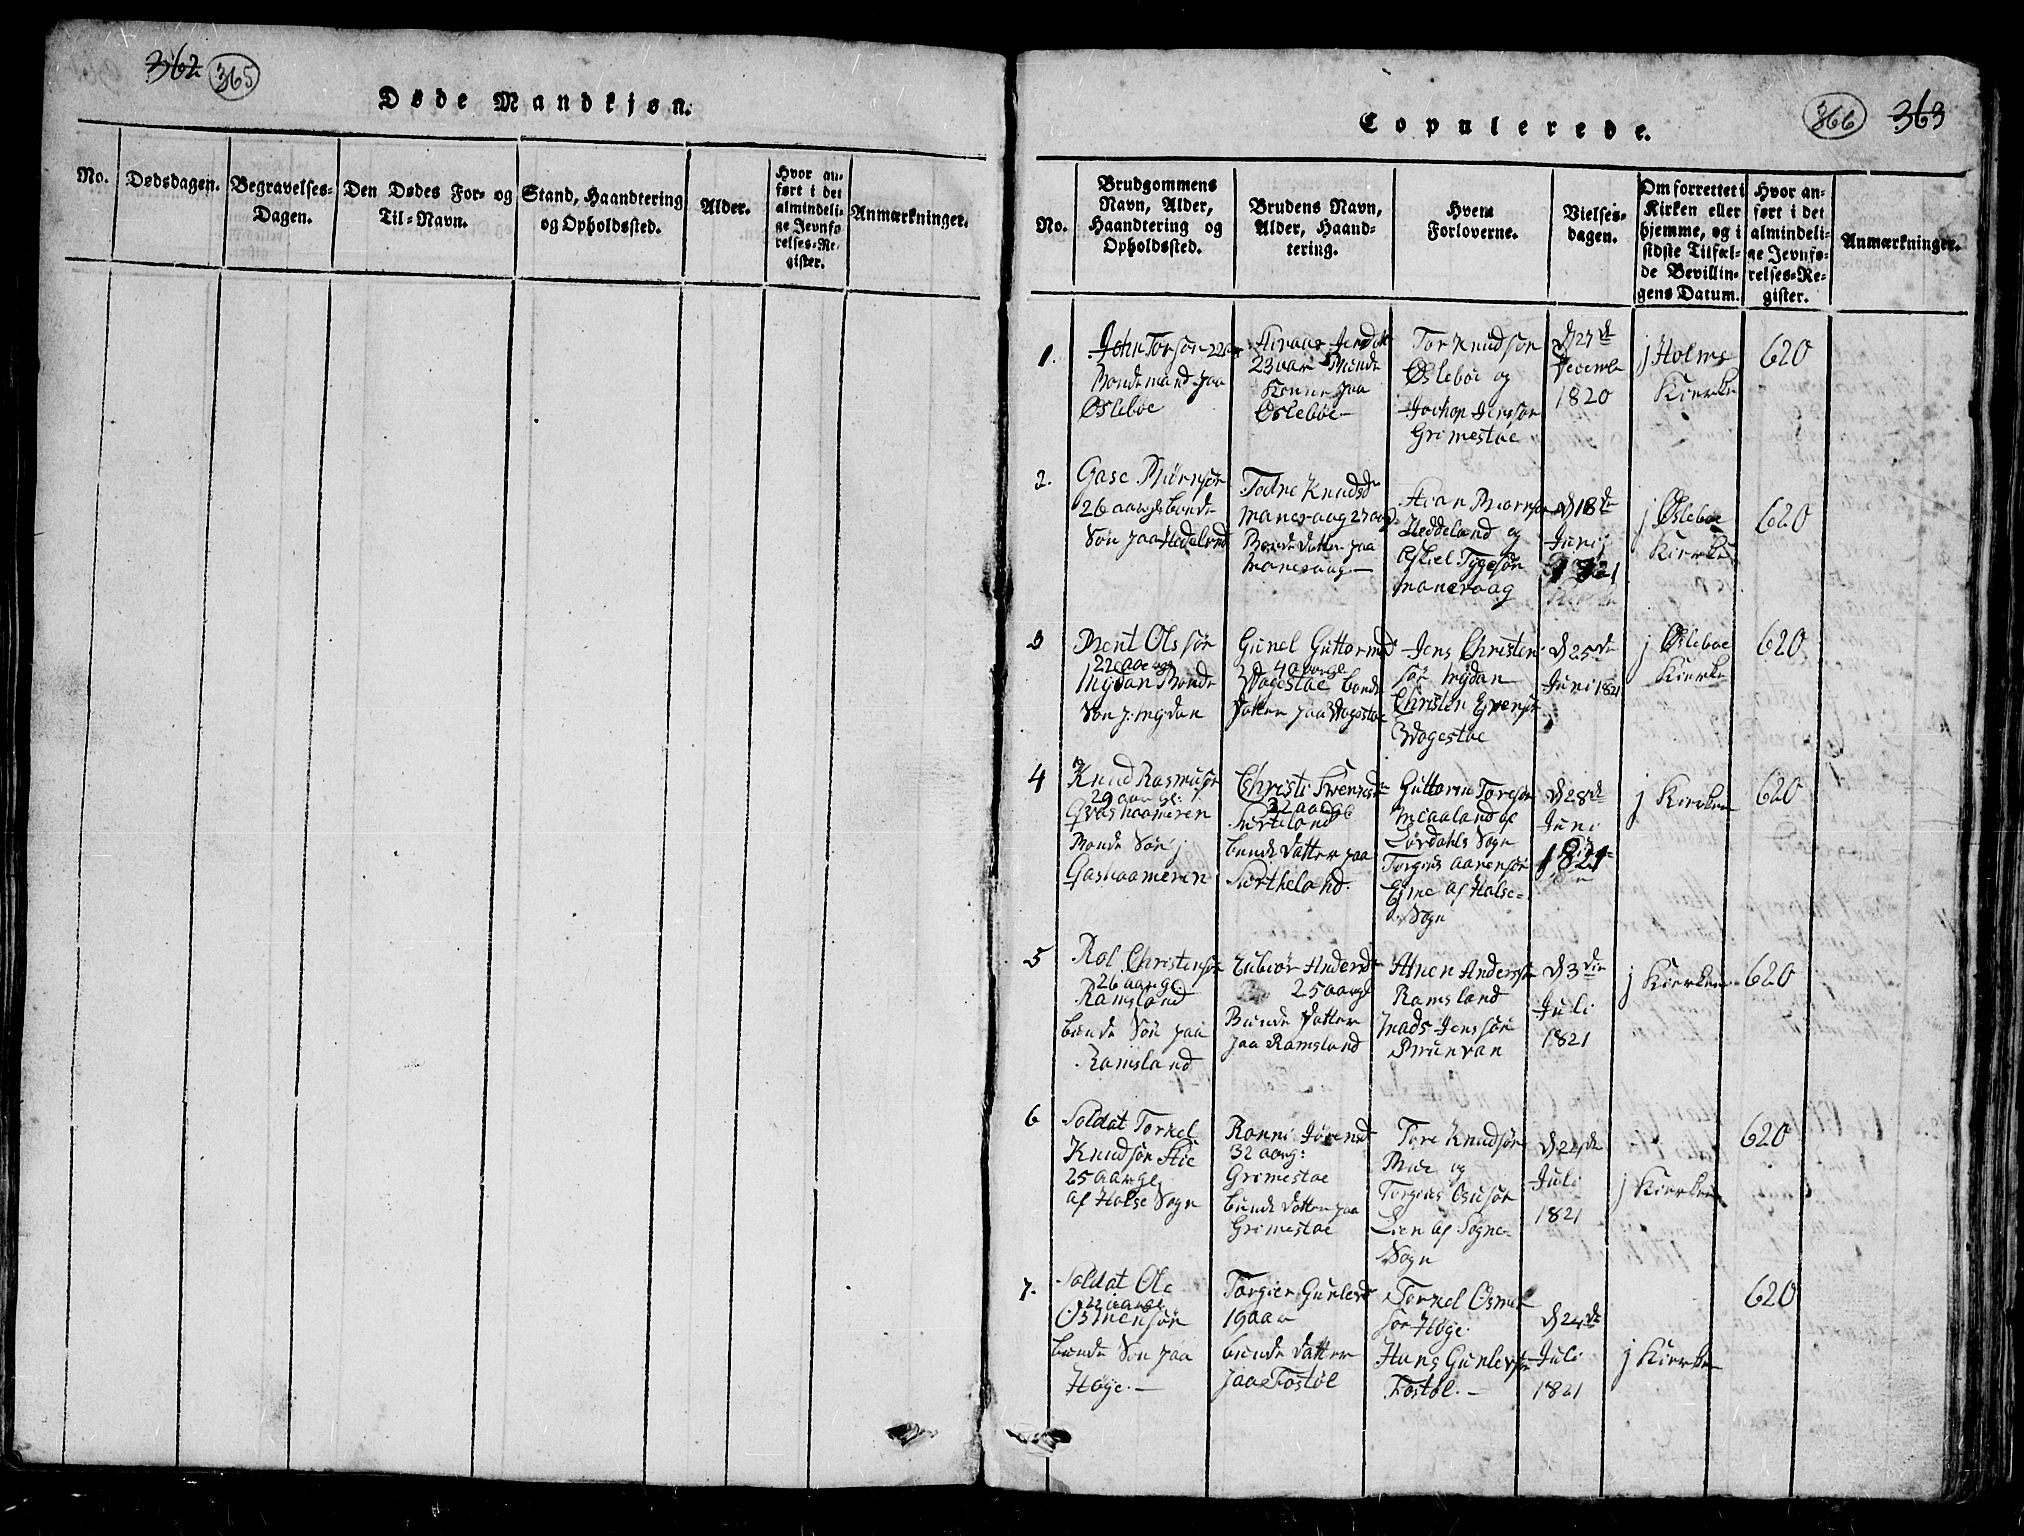 362 365
Døde Mandkjøn.
No.
Dødsdagen.
Begravelses-
Dagen.
Den Dødes For- og
Til-Navn.
Stand, Haandtering
og Opholdssted.
Alder.
Hvor an-
ført i det
almindeli-
ge Jevnfø-
relses-Re-
gister.
Anmærkninger.
366 363
Copulerede.
No.
Brudgommens
Navn, Alder,
Haandtering og
Opholdssted.
Brudens Navn,
Alder, Haand-
tering.
Hvem
Forloverne.
Vielses-
dagen.
Om forrettet i
Kirken eller
hjemme, og i
sidste Tilfæl-
de Bevillin-
gens Datum.
Hvor an-
ført i det
almindeli-
ge Jevnfø-
relses-Re-
gister.
Anmærkninger.
1.
John Torsøn 22
Bondemand paa
Øslebøe
23 aar Bonde
Konne paa
Øslebøe
Tor Knudsøn
Øslebøe og
Jochop Jenssøn
Grimestøe
d 27de
December
1820
j Holms
Kierke
620
2.
Biørnsøn
26 aargl bonde
Søn paa Hedeland
Knudsd
Maneraag 27 aar
Bonde datter paa
Maneraag
Stian Biørnsøn
Heddeland og
Tygesøn
Maneraag
d 18de
Junij
1821
j Øslebøe
Kierke
620
3
Bent Olssøn
22 aargl
Mydan Bonde
Søn p. Mydan
Gunel Guttormsd
Wogestøe bonde
datter paa Wogestøe
Jens Christen-
søn Mydan
Christen
Wogestøe
d 25de
Juni 1821
j Øslebøe
Kierke
620
4
Knud Rasmusøn
29 aar gl:
Bonde Søn j
Gashaameren
Christi Svensd
22 aargl
bonde datter paa
Surtheland
Guttorm Toresøn
af
Lørdahls Sogn
Torgius Aanensøn
af Holse-
Sogn
d 28de
Juni
1821
j Kierken
620
5
Rol Christensøn
26 aargl.
Ramsland
bonde Søn paa
Ramsland
Andersd
25 aargl
Bonde datter
paa Ramsland
Anen Anderssøn
Ramsland
Mads Jenssøn
Brunvan
d 3die
Juli
1821
j Kierken
620
6
Soldat Torkel
Knudsøn Stie
25 aargl
af Holse Sogn
Ranni Jørensd
32 aarg:
Grimestøe
bonde datter paa
Grimestøe
Tore Knudsøn
og
Torgius Osusøn
Lien af Sogne-
Sogn
d 24de
Juli
1821
j Kierken
620
7.
Soldat Ole
22 aargl
Osmensøn
bonde Søn paa
Høje.
Torgier Gunlevsd
19 aar
bonde datter
paa Fostøl
Torkel Osmen
søn Høje
Hans Gunlevsøn
Fostøl.
d 24de
Juli
1821
j Kierken
620